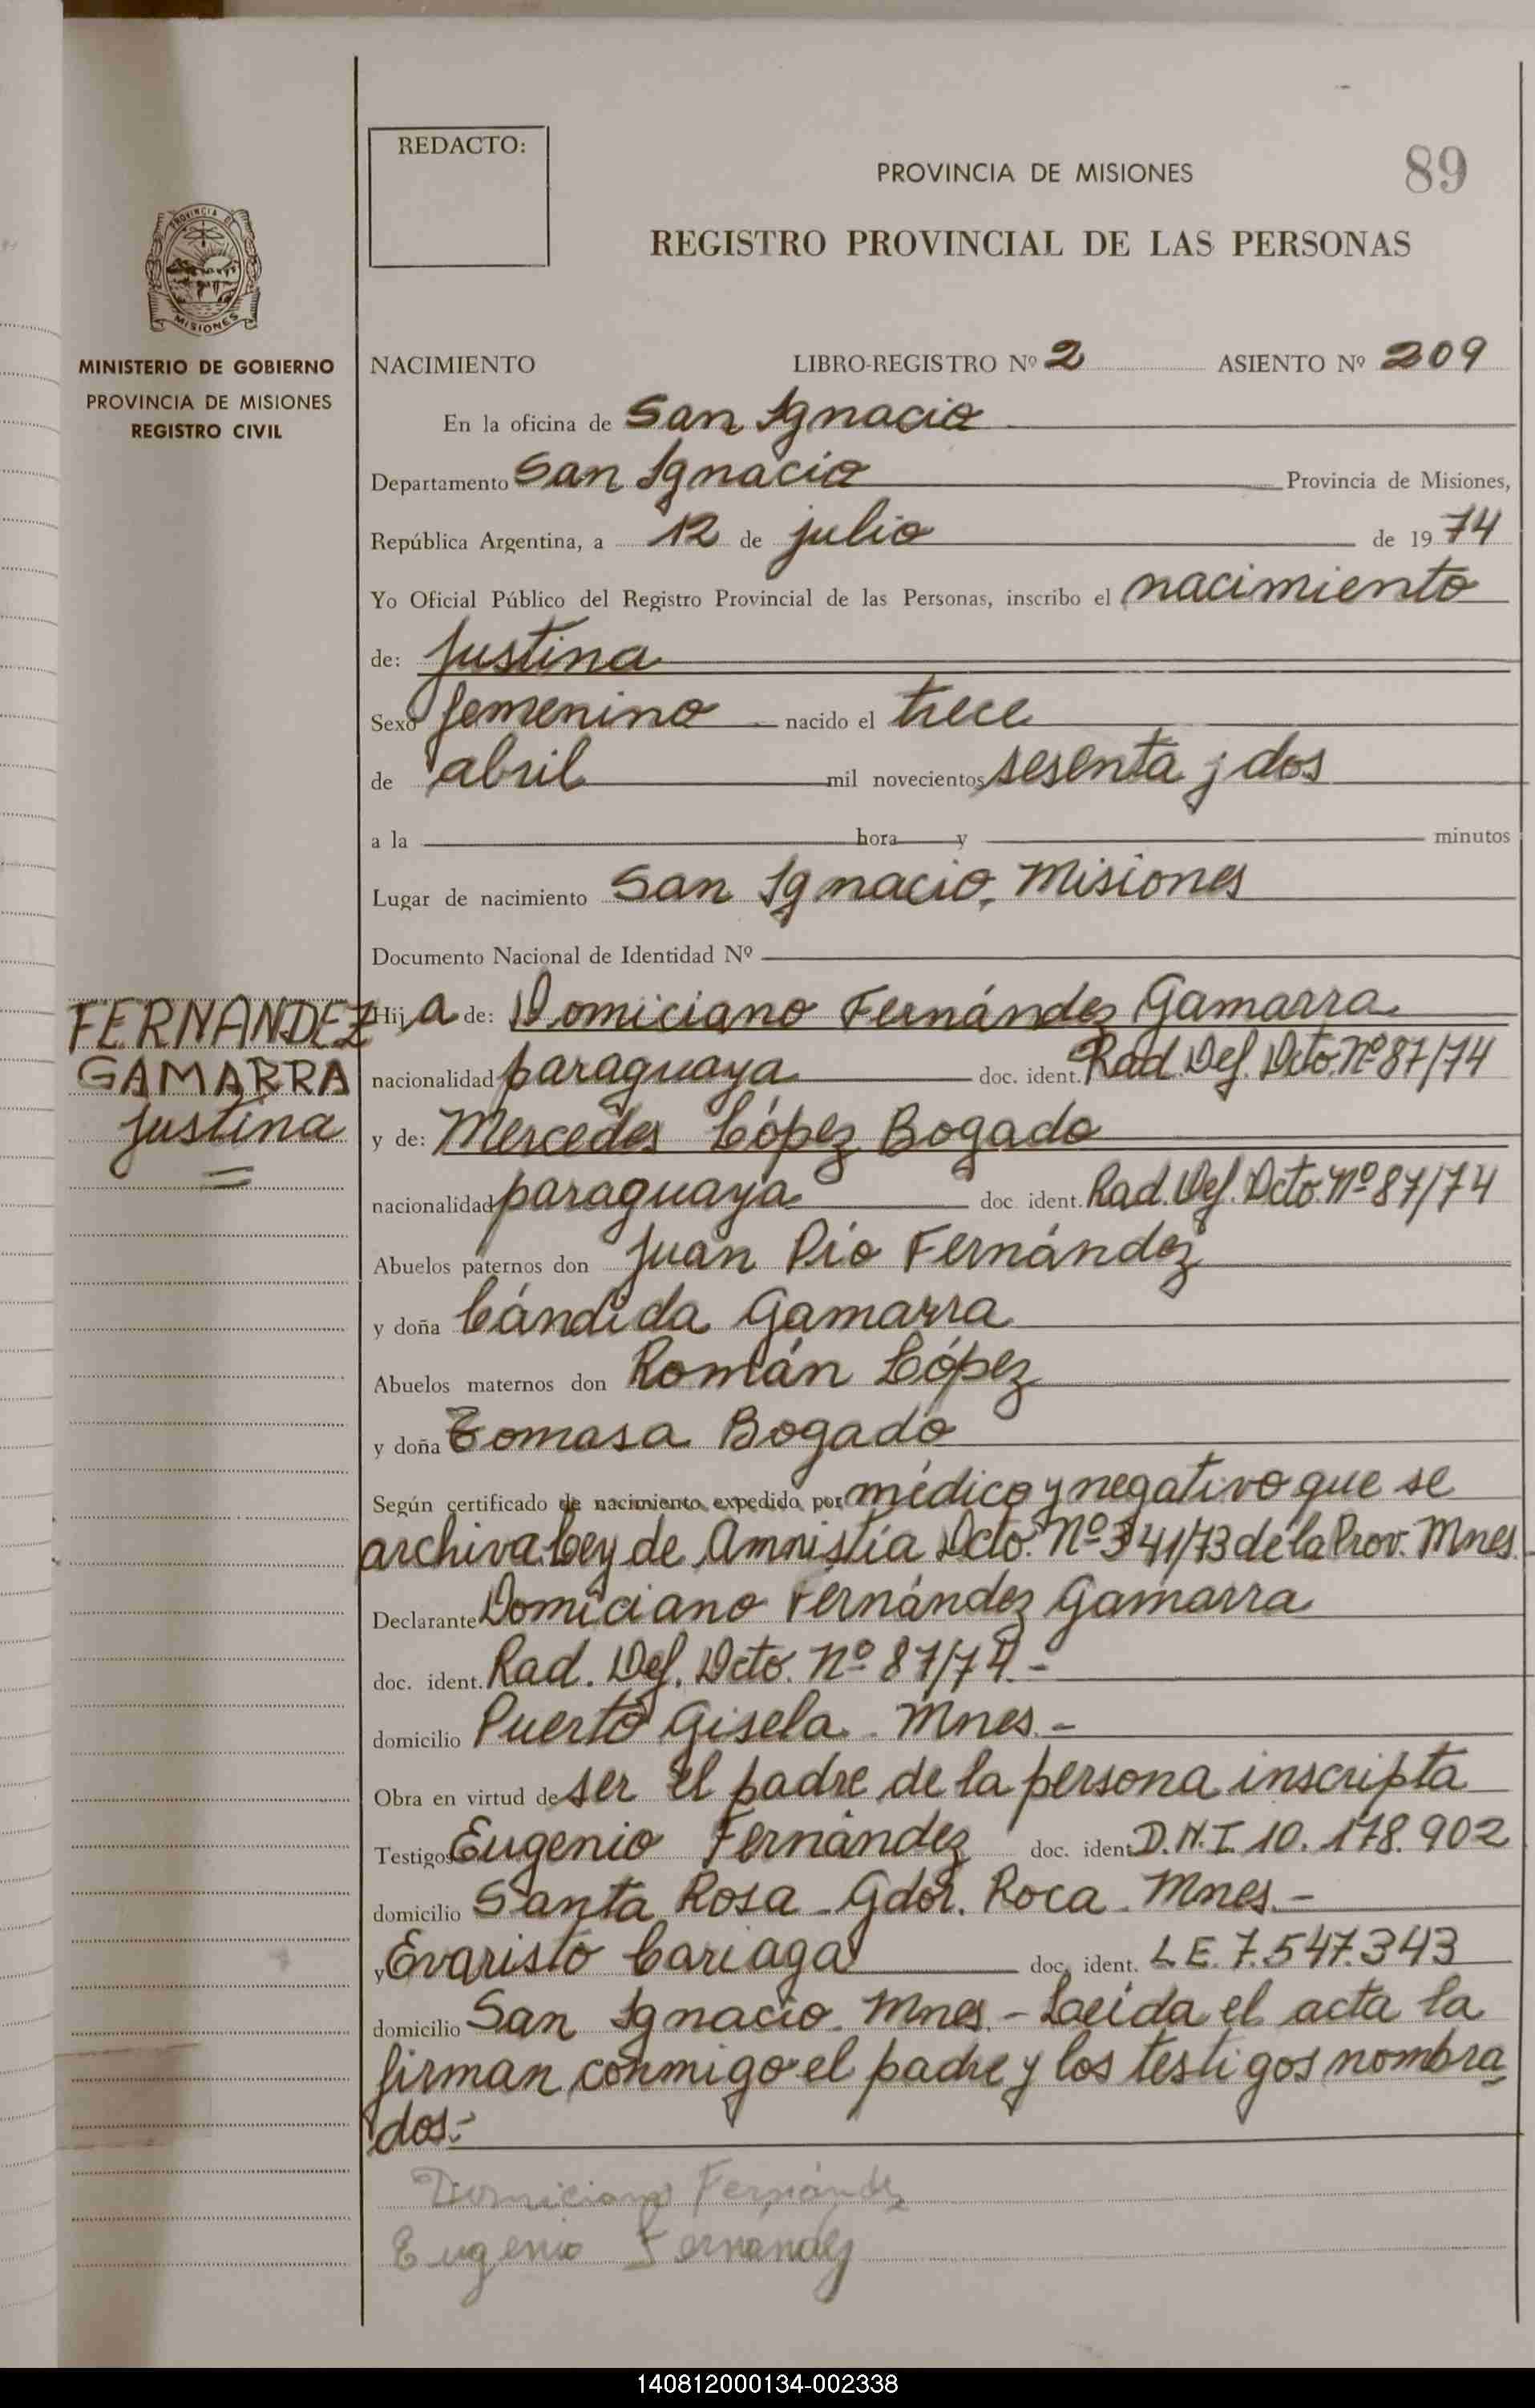 REDACTO:
PROVINCIA DE MISIONES
89
REGISTRO PROVINCIAL DE LAS PERSONAS
PROVINCIA DE
MISIONES
MINISTERIO DE GOBIERNO
PROVINCIA DE MISIONES
REGISTRO CIVIL
NACIMIENTO LIBRO-REGISTRO Nº 2 ASIENTO Nº 209
En la oficina de San Ignacio
Departamento San Ignacio Provincia de Misiones,
República Argentina, a 12 de julio de 1974
Yo Oficial Público del Registro Provincial de las Personas, inscribo el nacimiento
de: Justina
Sexo femenino nacido el trece
de abril mil novecientos sesenta y dos
a la hora y minutos
Lugar de nacimiento San Ignacio, Misiones
Documento Nacional de Identidad Nº
FERNANDEZ
GAMARRA
Justina
Hija de: Domiciano Fernández Gamarra
nacionalidad paraguaya doc. ident. Rad. Def. Dcto. Nº 87/74
y de: Mercedes López Bogado
nacionalidad paraguaya doc. ident. Rad. Def. Dcto. Nº 87/74
Abuelos paternos don Juan Pío Fernández
y doña Cándida Gamarra
Abuelos maternos don Román López
y doña Tomasa Bogado
Según certificado de nacimiento expedido por médico y negativo que se
archiva. Ley de Amnistía Dcto. Nº 341/73 de la Prov. Mnes.
Declarante Domiciano Fernández Gamarra
doc. ident. Rad. Def. Dcto. Nº 87/74.-
domicilio Puerto Gisela. Mnes.-
Obra en virtud de ser el padre de la persona inscripta
Testigos Eugenio Fernández doc. ident D.N.I. 10.178.902
domicilio Santa Rosa - Gdor. Roca. Mnes.-
y Evaristo Cariaga doc. ident. L.E. 7.547.343
domicilio San Ignacio. Mnes.- Leída el acta la
firman conmigo el padre y los testigos nombra-
dos.-
Domiciano Fernández
Eugenio Fernandez
140812000134-002338